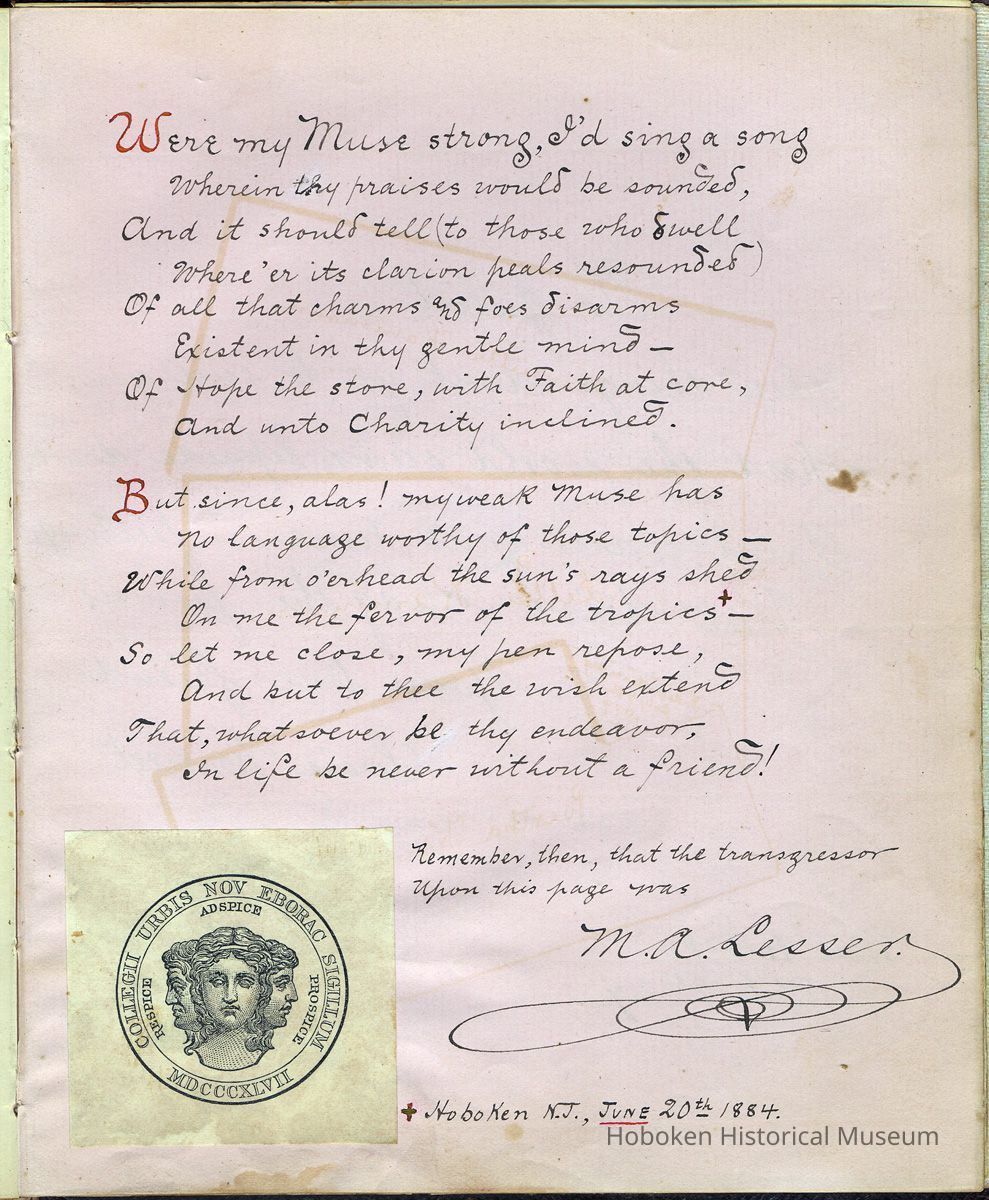 Were my Muse strong, I'd sing a song
Wherein thy praises would be sounded,
And it should tell (to those who dwell
Where'er its clarion peals resounded)
Of all that charms and foes disarms
Existent in thy gentle mind —
Of Hope the store, with Faith at core,
And unto Charity inclined.
But since, alas! my weak Muse has
No language worthy of those topics —
While from o'erhead the sun's rays shed
On me the fervor of the tropics + —
So let me close, my pen repose,
And but to thee the wish extend
That, whatsoever be thy endeavor,
In life be never without a friend!
Remember, then, that the transgressor
Upon this page was
M. A. Lesser.
COLLEGII URBIS NOV EBORAC SIGILLUM
ADSPICE
RESPICE
PROSPICE
MDCCCXLVII
+ Hoboken N.J., JUNE 20th 1884.
Hoboken Historical Museum